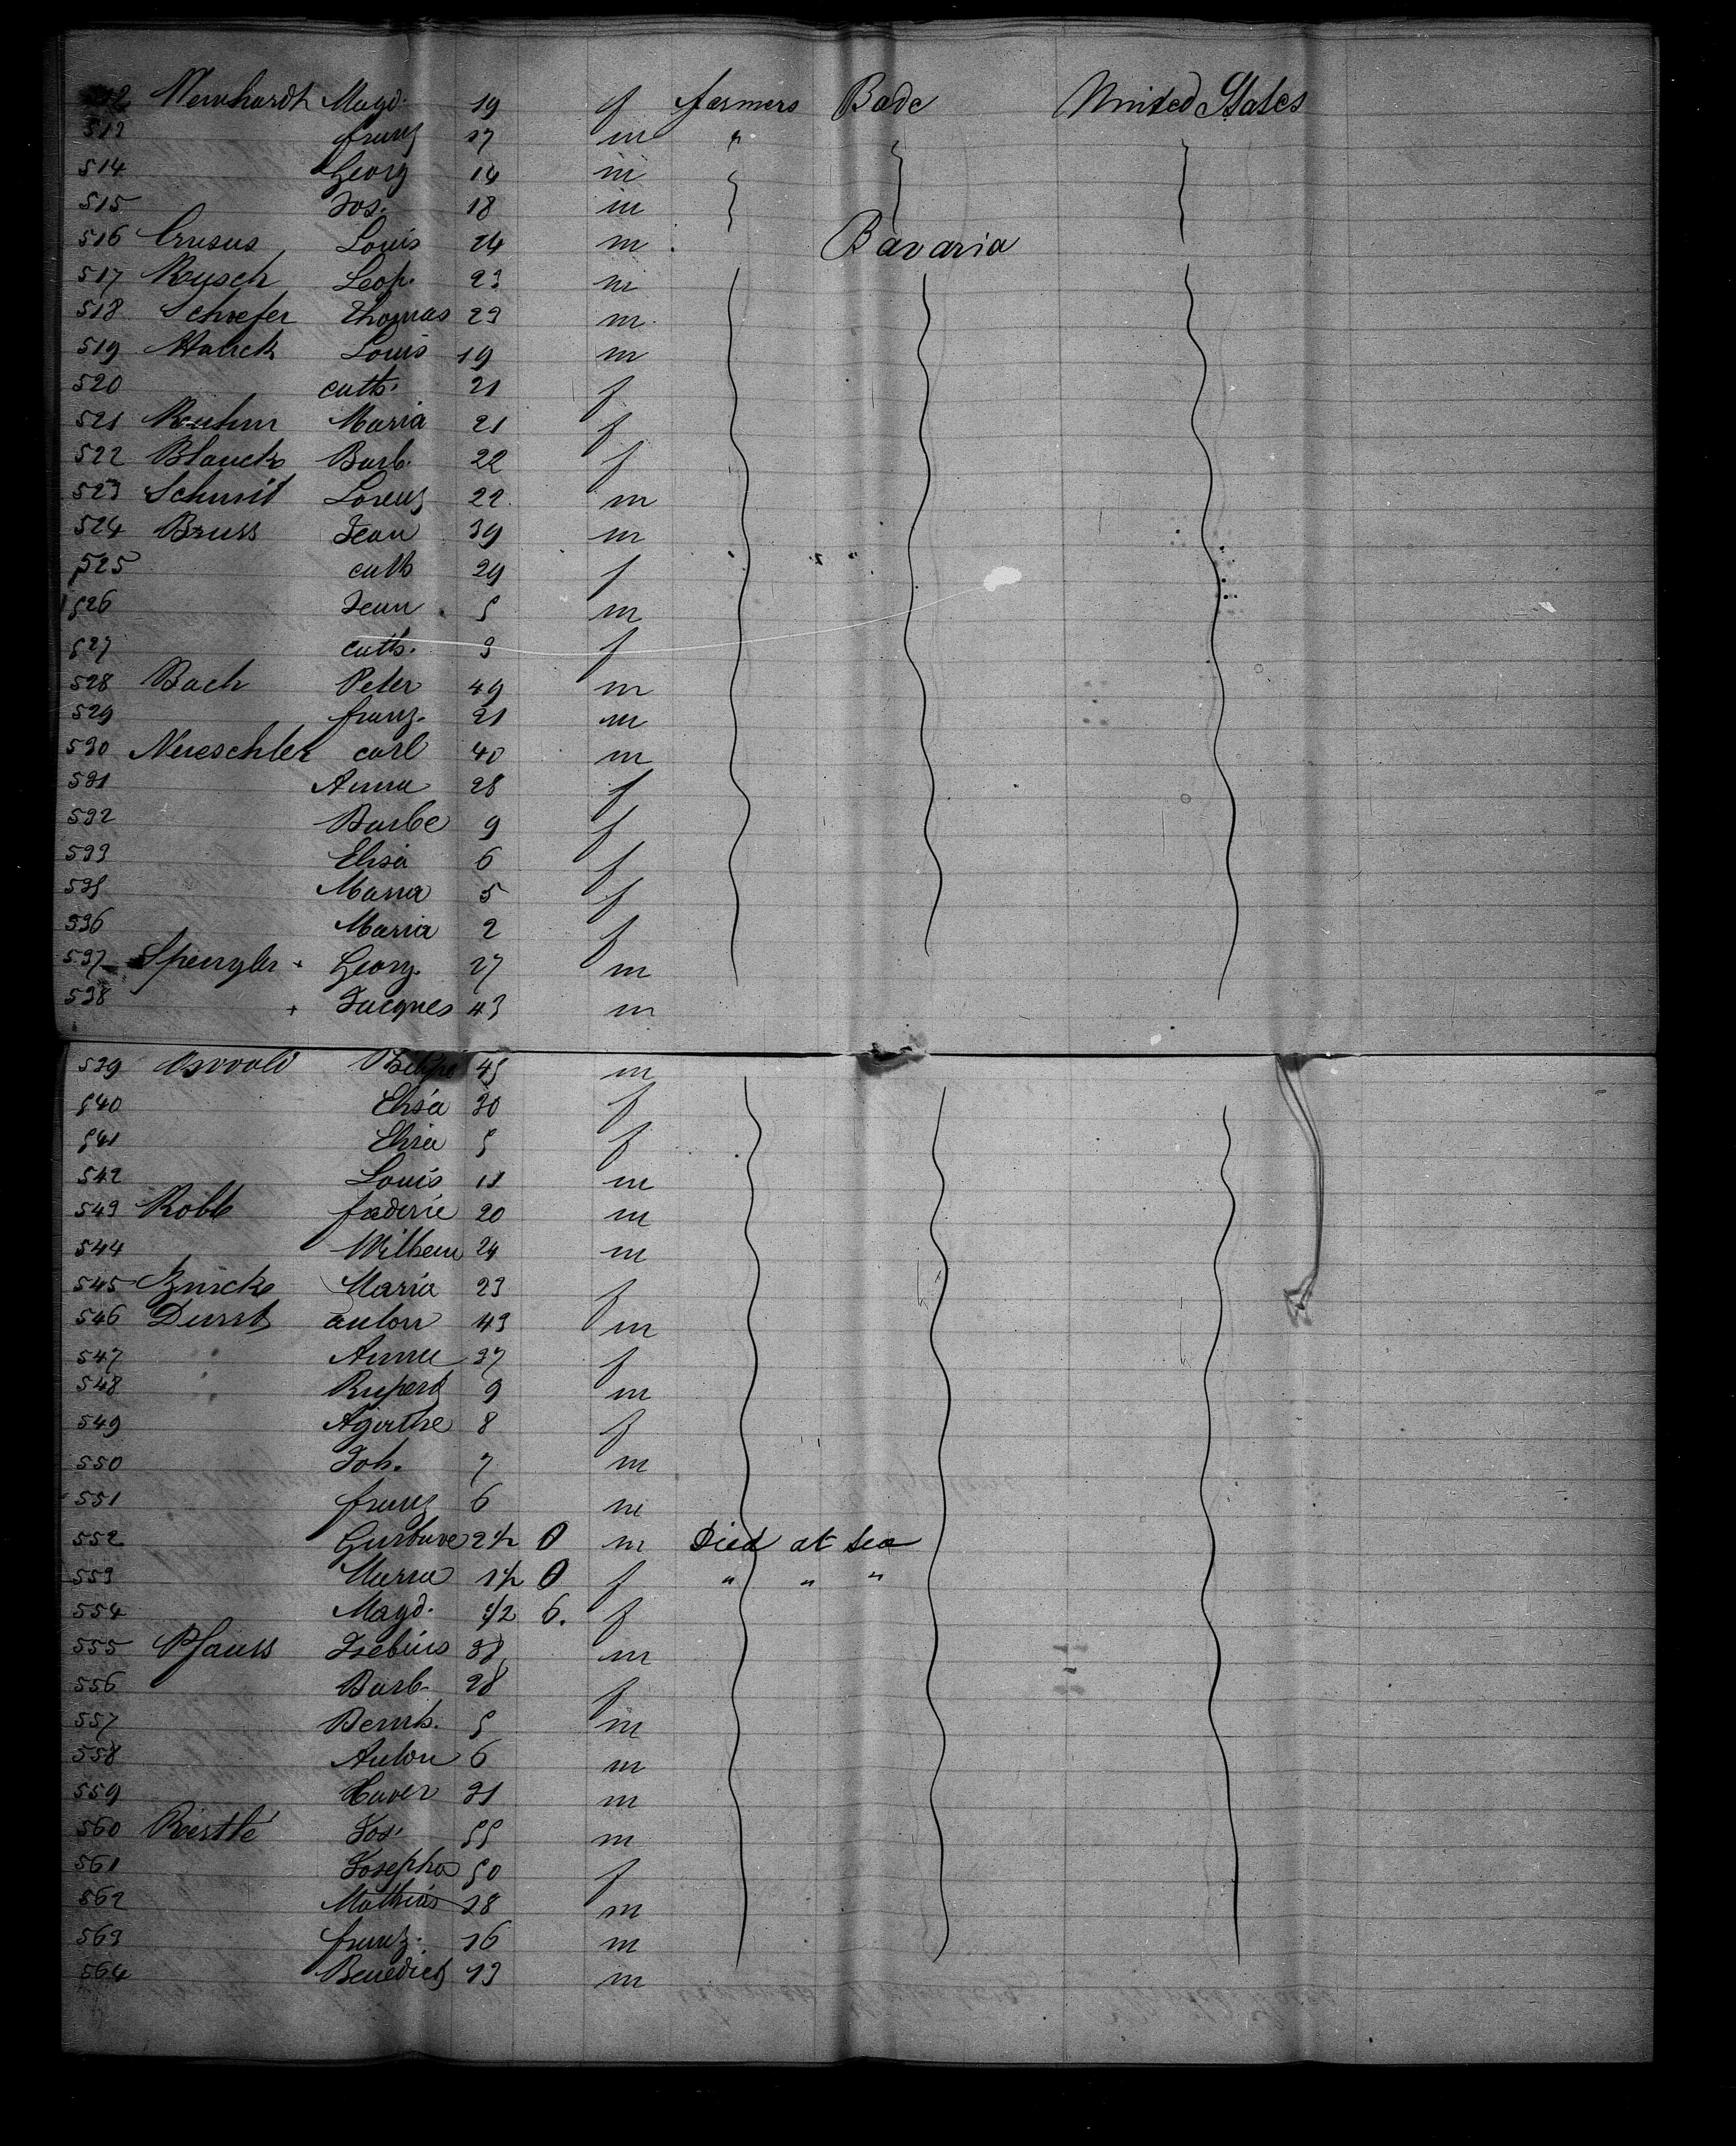 512 Weinhardt Magd. 19 f farmers Bade United States
513 franz 17 m "
514 Georg 14 m
515 Jos. 18 m
516 Crusus Louis 24 m Bavaria
517 Rusch Leop. 23 m
518 Schaefer Thomas 23 m
519 Hauck Louis 19 m
520 cath. 21 f
521 Ruhm Maria 21 f
522 Blanck Barb. 22 f
523 Schmid Lorenz 22 m
524 Bruss Jean 39 m
525 cath 29 f
526 Jean 5 m
527 cath. 3 f
528 Bach Peter 49 m
529 franz. 21 m
530 Nueschler carl 40 m
531 Anna 28 f
532 Barbe 9 f
533 Elisa 6 f
535 Maria 5 f
536 Maria 2 f
537 Spengler + Georg. 27 m
538 + Jacques 43 m
539 Oswald 45 m
540 Elisa 30 f
541 Elisa 5 f
542 Louis 11 m
543 Robb fraderic 20 m
544 Wilhem 24 m
545 Maria 23 f
546 Durst anton 43 m
547 Anna 37 f
548 Rupert 9 m
549 Agathe 8 f
550 Joh. 7 m
551 franz 6 m
552 Gustave 2 1/2 0 m Died at sea
553 Maria 1 1/2 0 f " " "
554 Magd. 1/2 6. f
555 Pfauss 38 m
556 Barb. 28 f
557 Bernh. 5 m
558 Anton 6 m
559 Xaver 31 m
560 Riestlé Jos. 55 m
561 Josepha 50 f
562 Mathias 18 m
563 franz. 16 m
564 Benedict 13 m